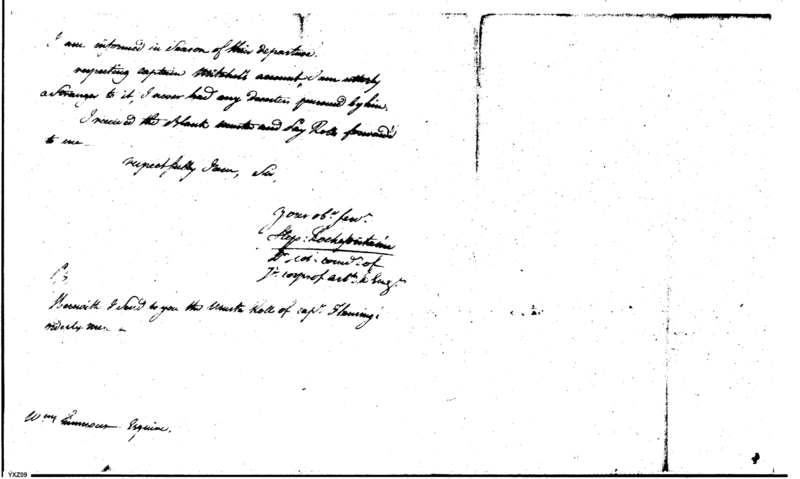 I am informed in Season of their departure.
respecting captain Mitchell's account, I am utterly
a Stranger to it, I never had any pursued by him.
I received the blank muster and Pay Rolls forward'd
to me
respectfully I am, Sir,
your obt. Servt.
Step: Rochefontaine
Lt. col. comdt. of
ye. corps of artys. & Engrs.
Herewith I Send to you the Muster Roll of capt. Fleming's
orderly men
Wm. Simmons Esquire.
YXZ09